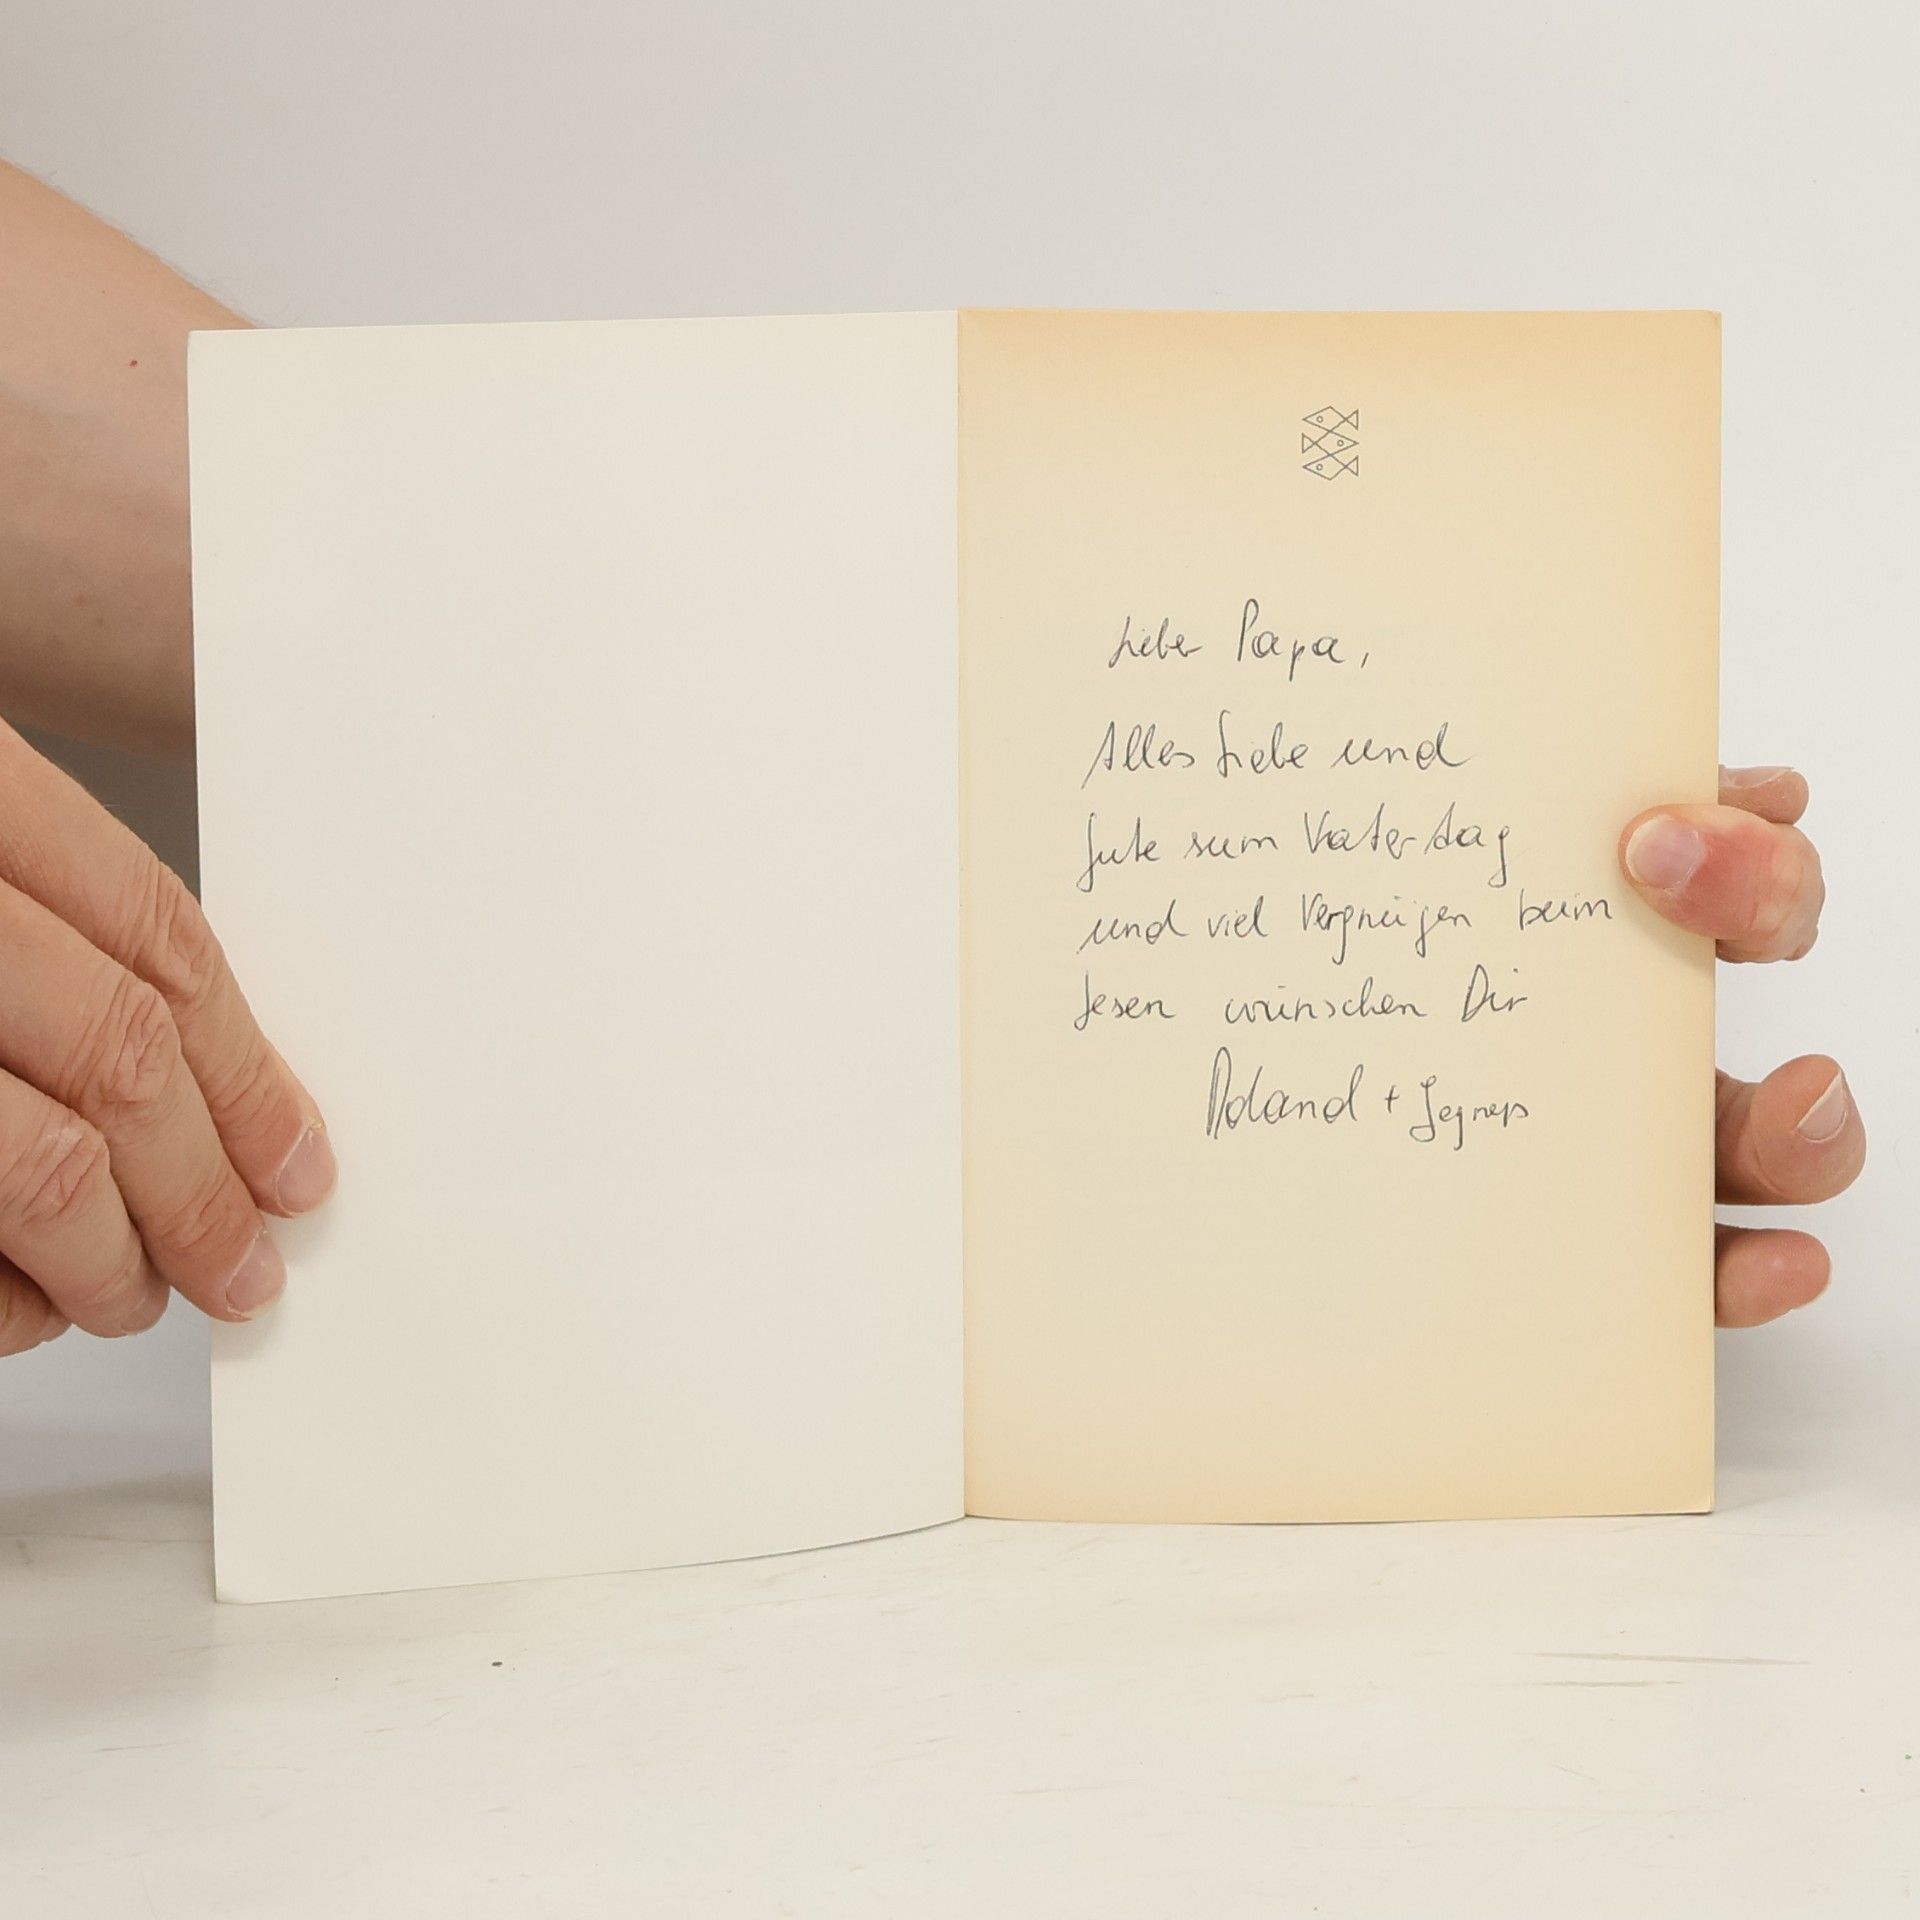 Lieber Papa,
Alles Liebe und
Gute zum Vatertag
und viel Vergnügen beim
Lesen wünschen Dir
Roland +